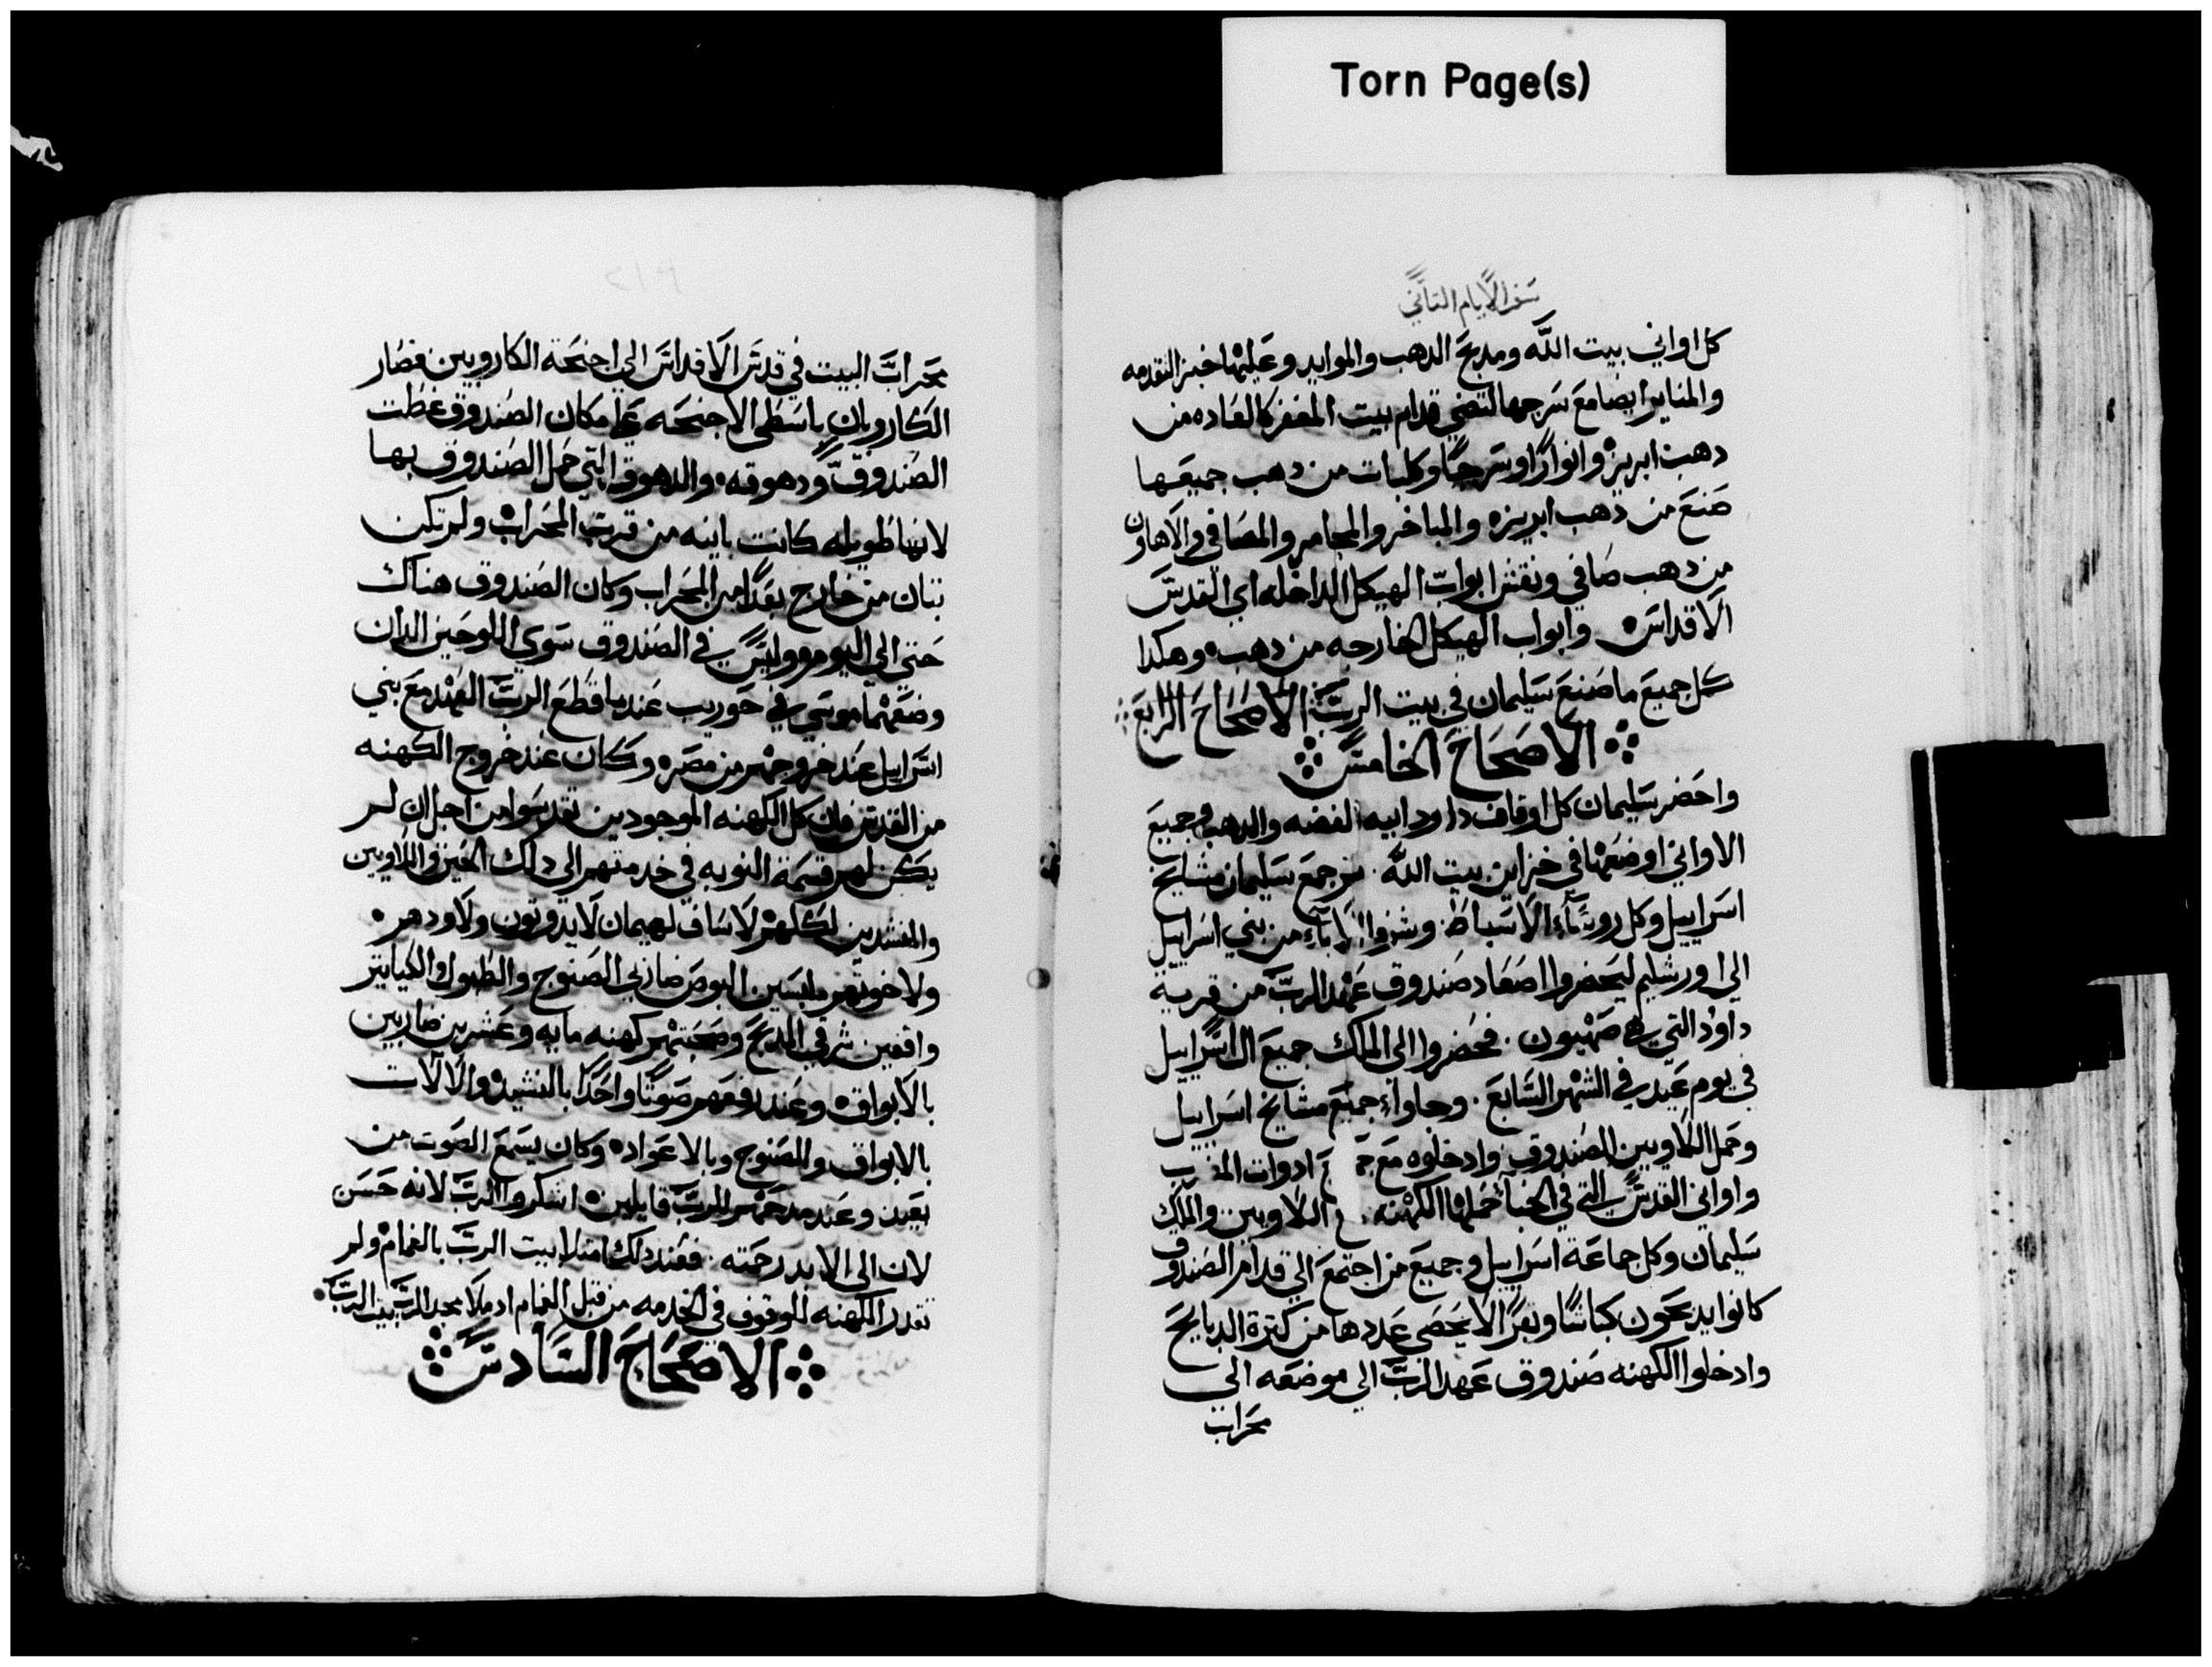 Torn Page(s)
سفر الايام التاني
كل اواني بيت الله ومدبح الدهب والموايد وعليها خبز التقدمه
والمناير ايضا مع سرجها لتضي قدام بيت المغفر كالعاده من
دهب ابريز وانوارًا وسرجًا وكلبات من دهب جميعها
صنع من دهب ابريزه والمباخر والمجامر والمصافي والاهاون
من دهب صافي ونقش ابواب الهيكل الداخله اي القدس
الاقداس وابواب الهيكل الخارجه من دهب وهكدا
كمل جميع ما صنع سليمان في بيت الرب الاصحاح الرابع
الاصحاح الخامس
واحضر سليمان كل اوقاف داود ابيه الفضه والدهب وجميع
الاواني اوضعها في خزاين بيت الله. تم جمع سليمان مشايخ
اسراييل وكل روساء الاسباط وشرفوا الاباء من بني اسراييل
الي اورشليم ليحضروا اصعاد صندوق عهد الرب من قرية
داود التي هي صهيون. فحضروا الي الملك جميع ال اسراييل
في يوم عيد في الشهر السابع. وجاواء جميع مشايخ اسراييل
وحمل اللاويين الصندوق وادخلوه مع ادوات
واواني القدس التي في الخبا حملوها الكهنه اللاويين والملك
سليمان وكل جماعة اسراييل وجميع من اجتمع الي قدام الصندوق
كانوا يدبحون كباشًا وبقرًا لا يحصي عددها من كترة الدبايح
وادخلوا الكهنه صندوق عهد الرب الي موضعه الي
محراب
محراب البيت في قدس الاقداس الي اجنحة الكاروبين فصار
الكاروبان باسطي الاجنحه علي مكان الصندوق غطت
الصندوق ودهوقه والدهوق التي حمل الصندوق بها
لانها طويله كانت باينه من قرب المحراب ولم تكن
تبان من خارج بقدام المحراب وكان الصندوق هناك
حتي الي اليوم وليس في الصندوق سوي اللوحين الدان
وضعهما موسي في حوريب عندما قطع الرب العهد مع بني
اسراييل عند خروجهم من مصره وكان عند خروج الكهنه
من القدس فان كل الكهنه الموجودين تقدسوا من اجل ان لم
يكن لهم قسمة النوبه في خدمتهم الي دلك الحين واللاويين
والمنشدين لكلهم لاساف لهيمان لايدوتون ولاودهم
ولاخوتهم ملبسين البوص ضاربي الصنوج والطبول والكياتير
واقفين شرقي المدبح وصحبتهم كهنه مايه وعشرين ضاربين
بالابواق وعند رفعهم صوتًا واحدًا بالنشيد والالات
بالابواق والصنوج وبالاعواد وكان يسمع الصوت من
بعيد وعند مدحهم للرب قايلين اشكروا الرب لانه حسن
لان الي الابد رحمته. فعند دلك امتلا بيت الرب بالغمام ولم
تقدر الكهنه للوقوف في الخدمه من قبل الغمام اد ملا مجد الرب بيت الرب
الاصحاح السادس